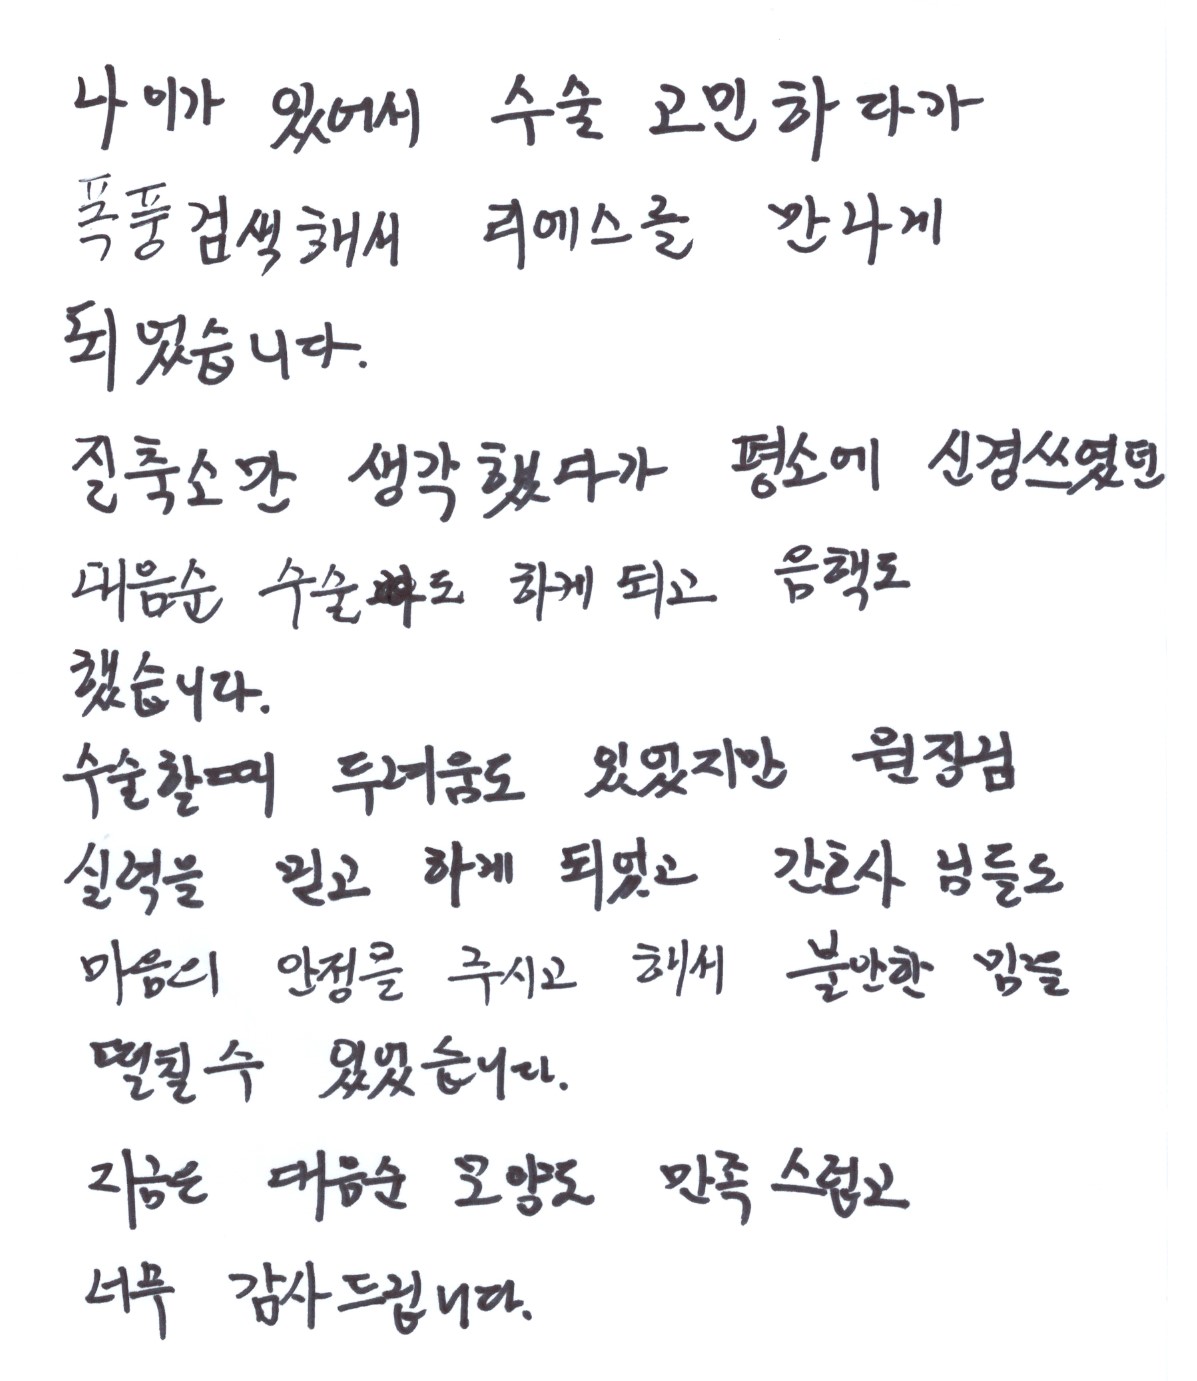 나이가 있어서 수술 고민하다가
폭풍검색해서 리에스를 만나게
되었습니다.
질축소만 생각했다가 평소에 신경쓰였던
대음순 수술도 하게 되고 음핵도
했습니다.
수술할때 두려움도 있었지만 원장님
실력을 믿고 하게 되었고 간호사 님들도
마음의 안정을 주시고 해서 불안한 맘을
떨칠 수 있었습니다.
지금은 대음순 모양도 만족스럽고
너무 감사드립니다.